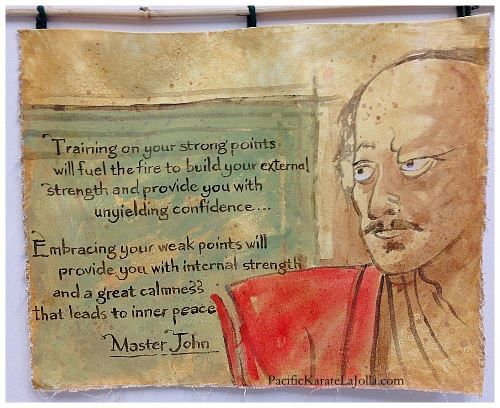 Training on your strong points
will fuel the fire to build your external
strength and provide you with
unyielding confidence...
Embracing your weak points will
provide you with internal strength
and a great calmness
that leads to inner peace
Master John
PacificKarateLaJolla.com